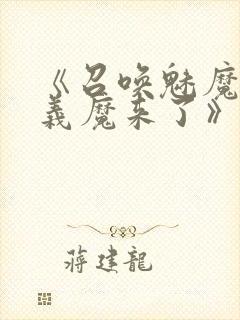 《召唤魅魔
義魔来了》
蒋建龍